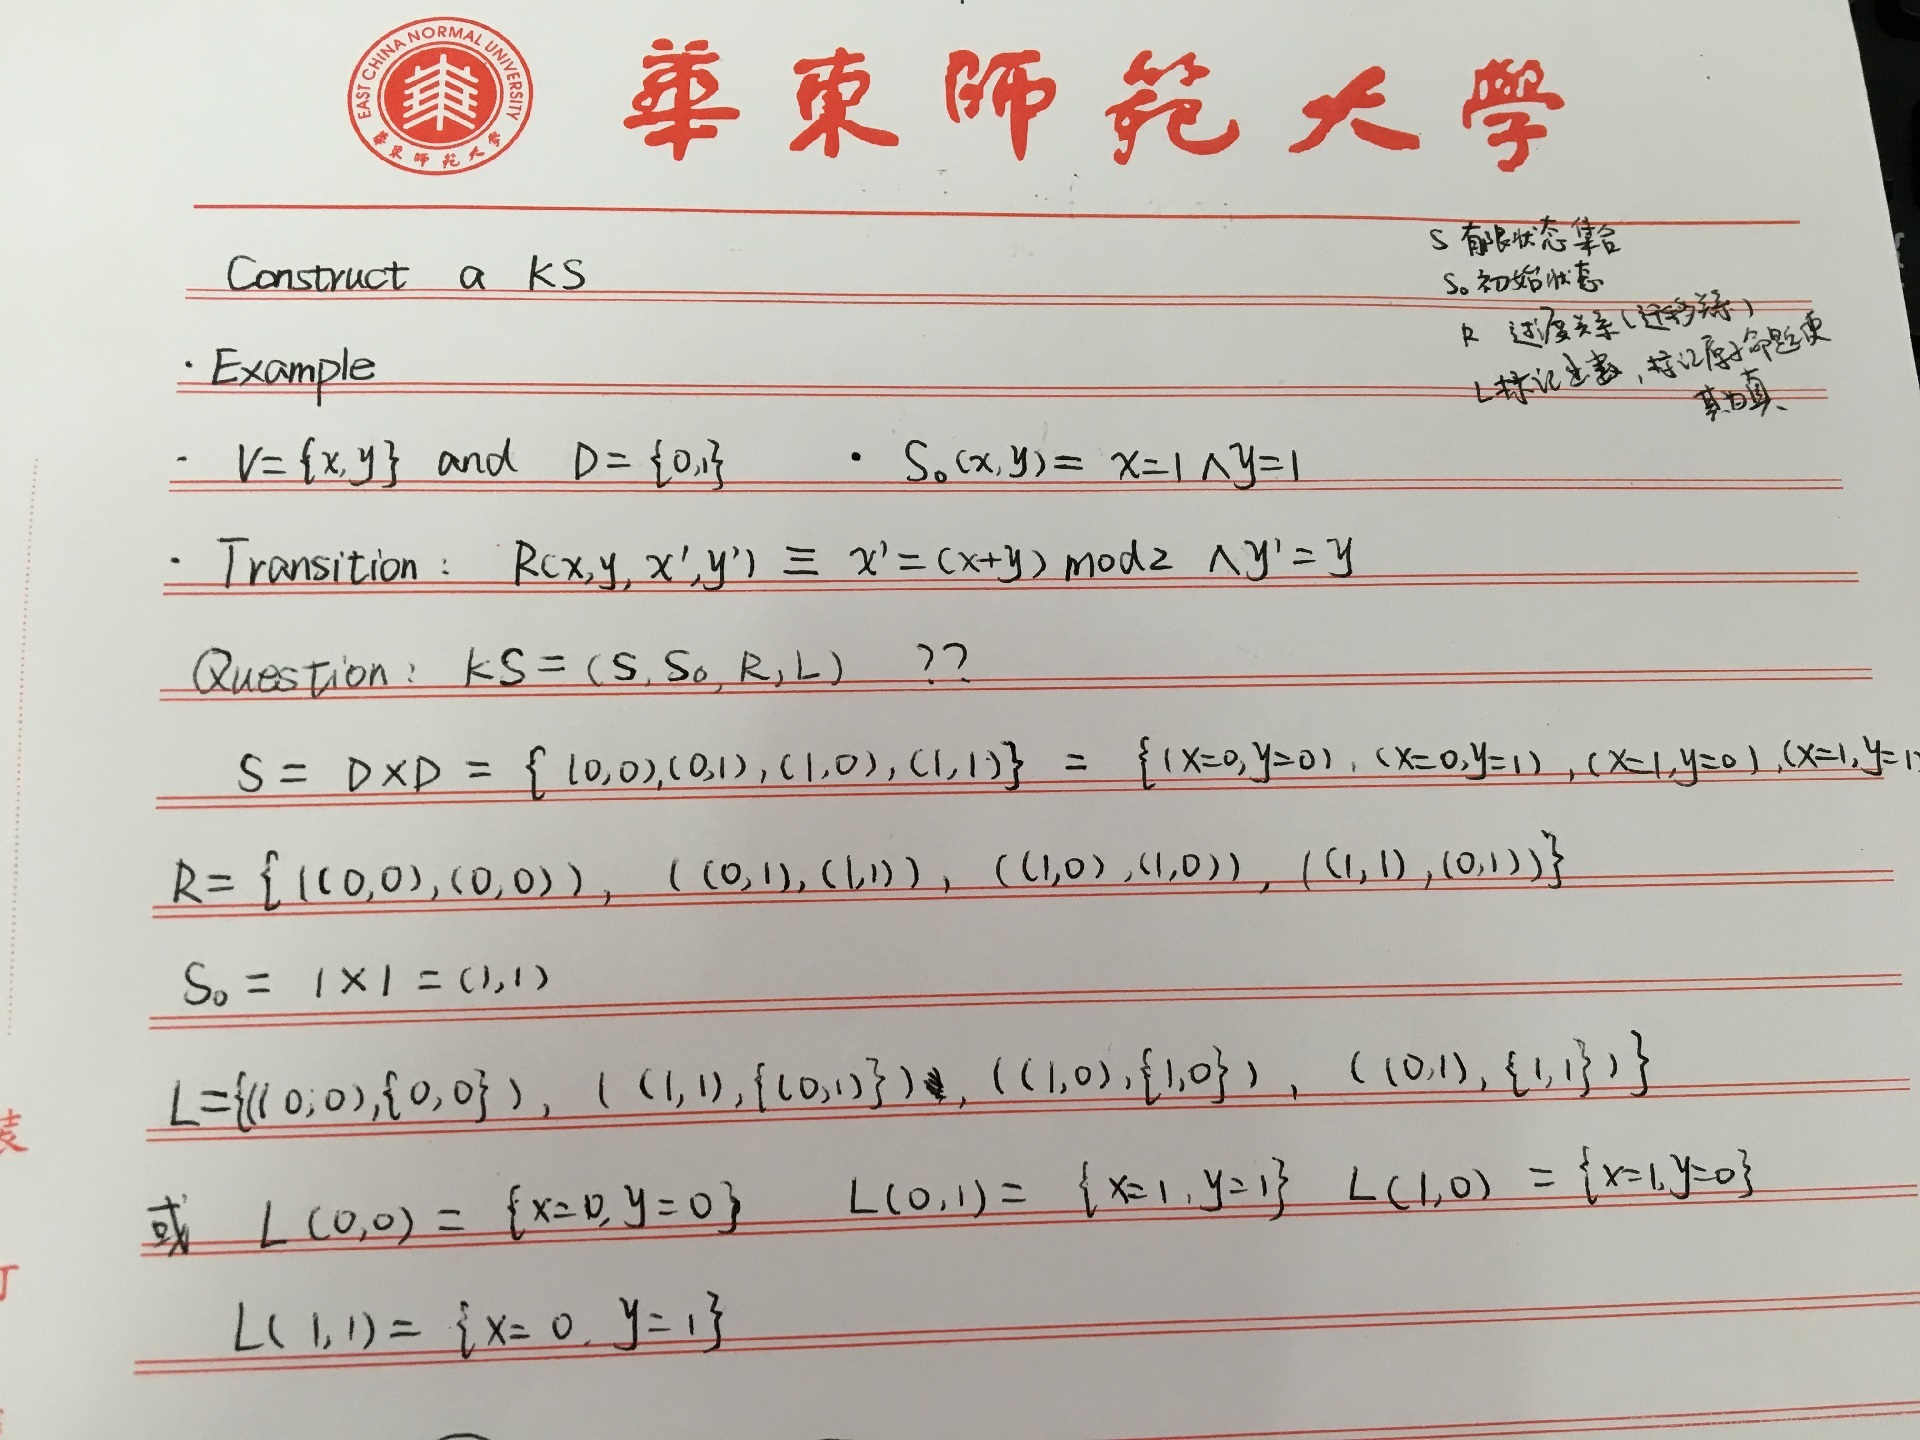 EAST CHINA NORMAL UNIVERSITY
華東師範大學
華東師範大學
S 有限状态集合
S₀ 初始状态
R 过度关系(迁移关系)
L 标记函数,标记原子命题使
其为真、
Construct a KS
· Example
· V={x,y} and D={0,1} · S₀(x,y)= x=1 ∧ y=1
· Transition: R(x,y,x',y') ≡ x'=(x+y) mod 2 ∧ y'=y
Question: KS=(S,S₀,R,L) ??
S = D×D = { (0,0),(0,1),(1,0),(1,1)} = {(x=0,y=0),(x=0,y=1),(x=1,y=0),(x=1,y=1)
R={((0,0),(0,0)), ((0,1),(1,1)), ((1,0),(1,0)), ((1,1),(0,1))}
S₀ = 1×1 = (1,1)
L={((0,0),{0,0}), ((1,1),{(0,1)}), ((1,0),{1,0}), ((0,1),{1,1})}
或 L(0,0) = {x=0,y=0} L(0,1) = {x=1,y=1} L(1,0) = {x=1,y=0}
L(1,1) = {x=0,y=1}
装
订